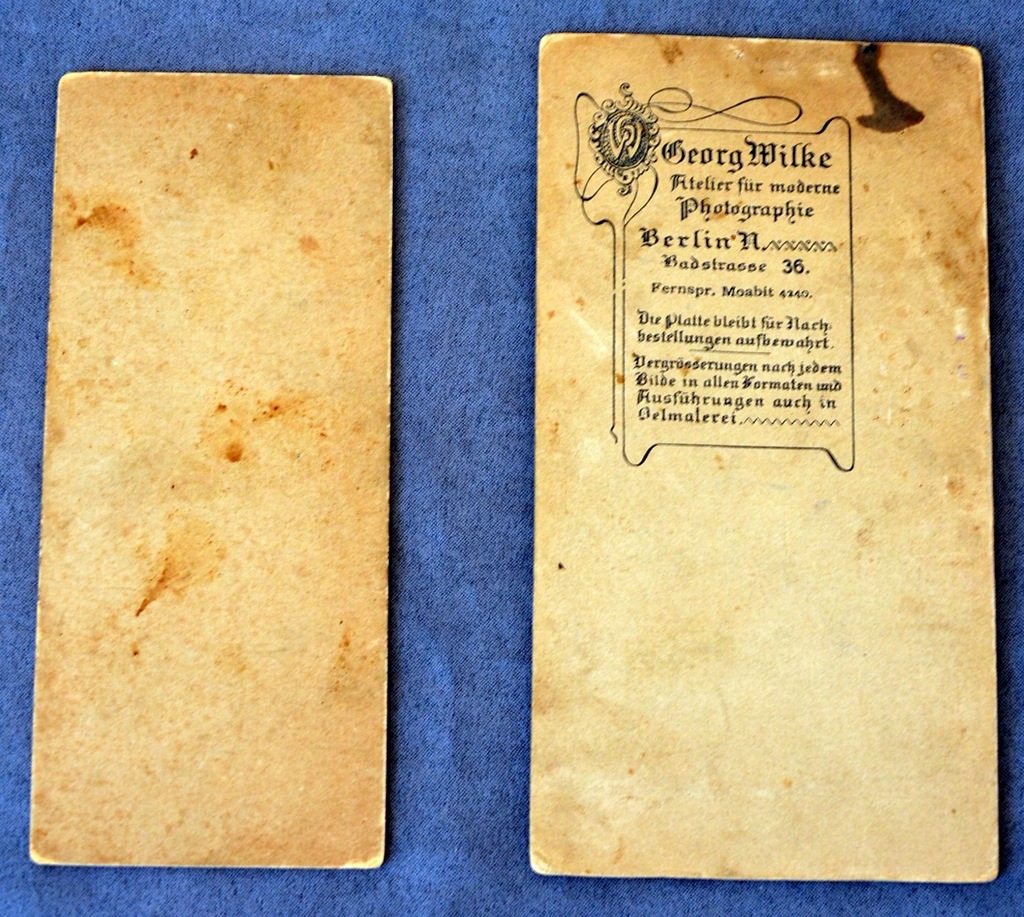 Georg Wilke
Atelier für moderne
Photographie
Berlin N.
Badstrasse 36.
Fernspr. Moabit 4240.
Die Platte bleibt für Nach-
bestellungen aufbewahrt.
Vergrösserungen nach jedem
Bilde in allen Formaten und
Ausführungen auch in
Oelmalerei.